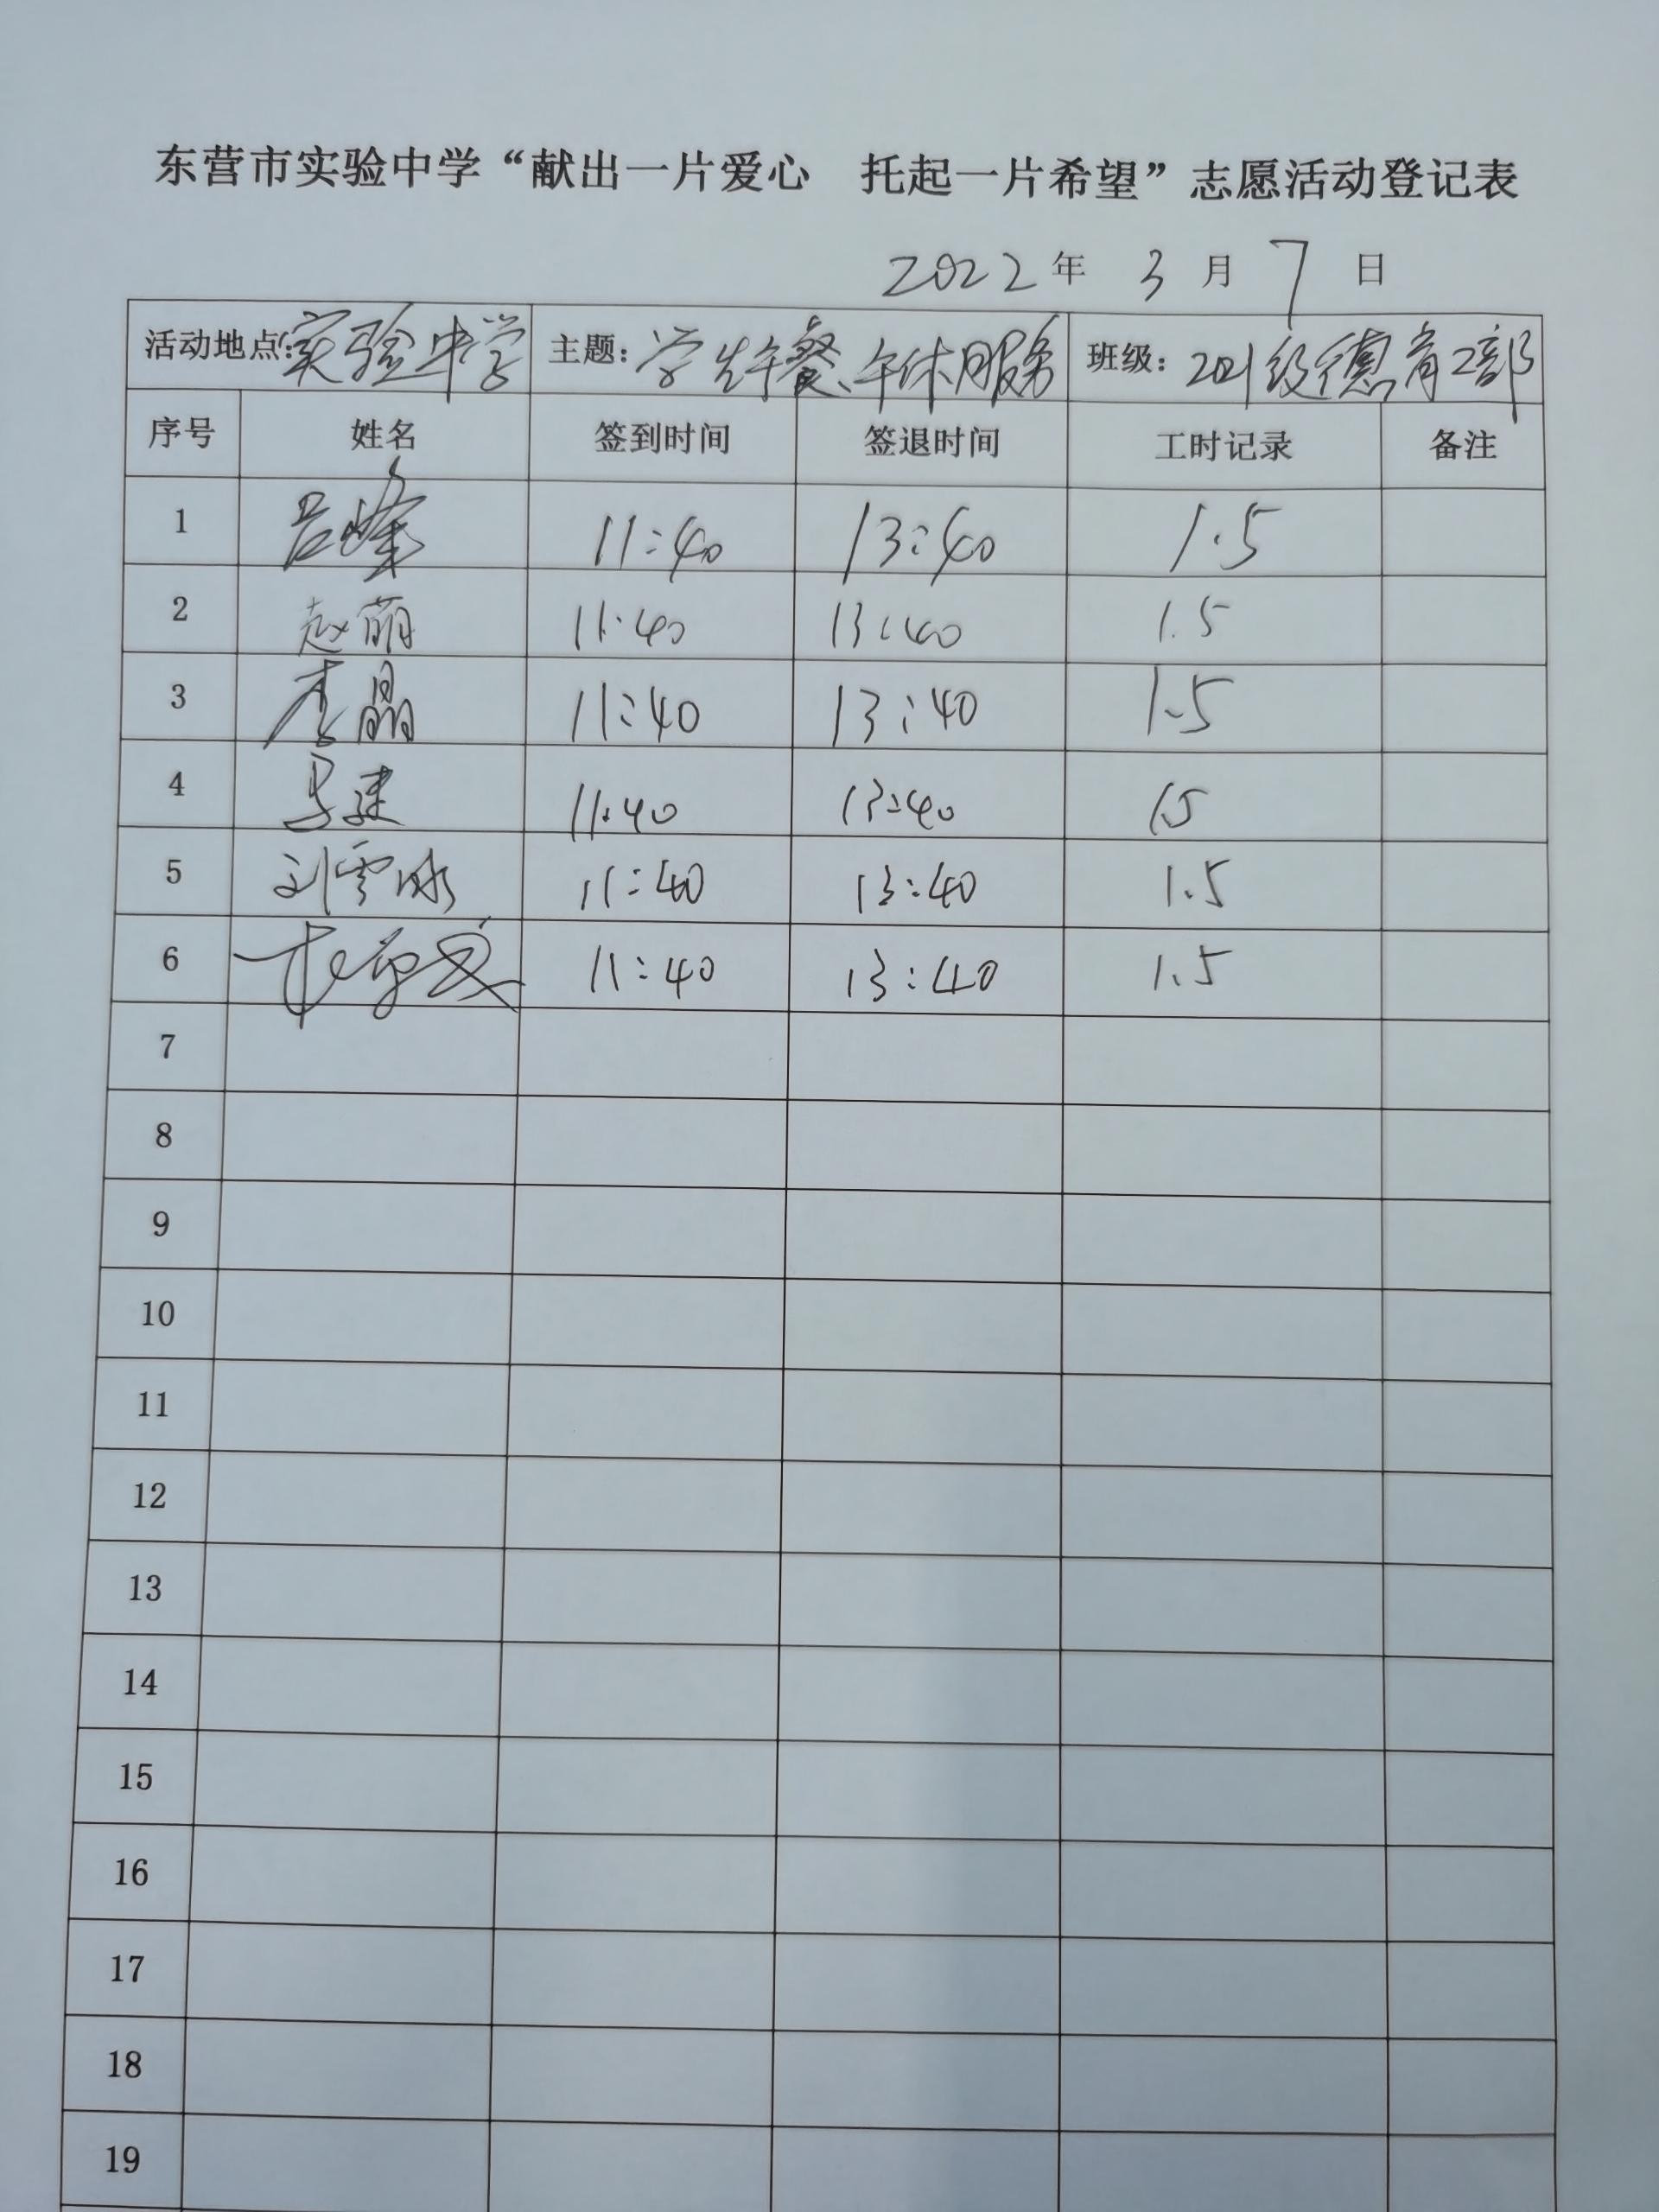 东营市实验中学“献出一片爱心　托起一片希望”志愿活动登记表
2022 年 3 月 7 日
活动地点:实验中学 主题:学生午餐、午休服务 班级:2021级德育2部
序号 姓名 签到时间 签退时间 工时记录 备注
1 吕峰 11:40 13:40 1.5
2 赵萌 11:40 13:40 1.5
3 李晶 11:40 13:40 1.5
4 马建 11:40 13:40 1.5
5 刘雪冰 11:40 13:40 1.5
6 11:40 13:40 1.5
7
8
9
10
11
12
13
14
15
16
17
18
19